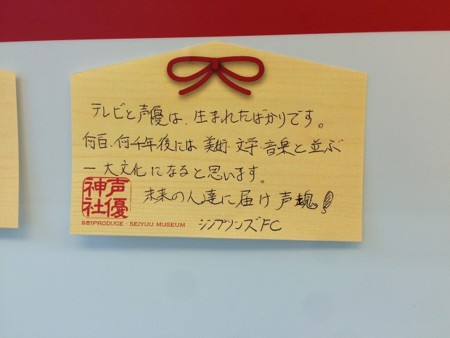 テレビと声優は、生まれたばかりです。
何百、何千年後には美術 文学 音楽と並ぶ
一大文化になると思います。
未来の人達に届け 声魂!
シンプソンズFC
声優神社
S@!PRODUCE SEIYUU MUSEUM